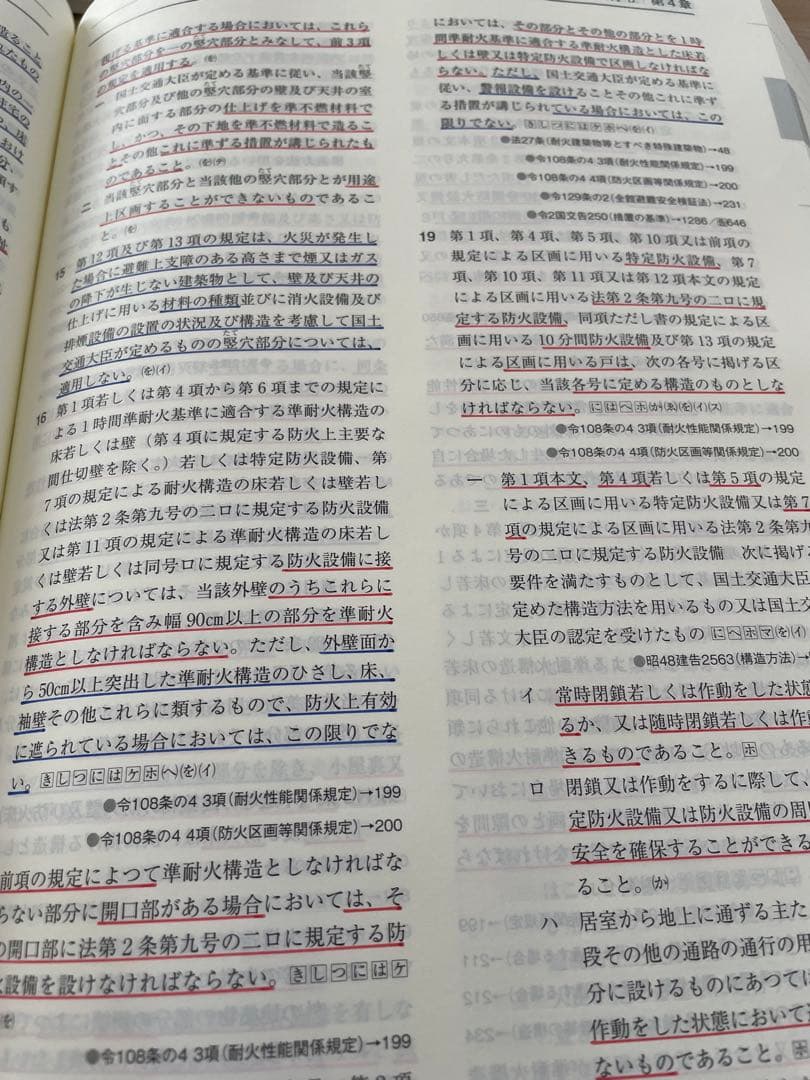 第4章
掲げる基準に適合する場合においては、これら
の竪穴部分を一の竪穴部分とみなして、前3項
の規定を適用する。(を)
一 国土交通大臣が定める基準に従い、当該竪
穴部分及び他の竪穴部分の壁及び天井の室
内に面する部分の仕上げを準不燃材料で
し、かつ、その下地を準不燃材料で造るこ
とその他これに準ずる措置が講じられたも
のであること。(を)(チ)
二 当該竪穴部分と当該他の竪穴部分とが用途
上区画することができないものであるこ
と。(を)
15 第12項及び第13項の規定は、火災が発生し
た場合に避難上支障のある高さまで煙又はガス
の降下が生じない建築物として、壁及び天井の
仕上げに用いる材料の種類並びに消火設備及び
排煙設備の設置の状況及び構造を考慮して国土
交通大臣が定めるものの竪穴部分については、
適用しない。(を)(イ)
16 第1項若しくは第4項から第6項までの規定に
よる1時間準耐火基準に適合する準耐火構造の
床若しくは壁(第4項に規定する防火上主要な
間仕切壁を除く。)若しくは特定防火設備、第
7項の規定による耐火構造の床若しくは壁若し
くは法第2条第九号の二ロに規定する防火設備
又は第11項の規定による準耐火構造の床若し
くは壁若しくは同号ロに規定する防火設備に接
する外壁については、当該外壁のうちこれらに
接する部分を含み幅90cm以上の部分を準耐火
構造としなければならない。ただし、外壁面か
ら50cm以上突出した準耐火構造のひさし、床、
袖壁その他これらに類するもので、防火上有効
に遮られている場合においては、この限りでな
い。きしつにはケホ(へ)(を)(イ)
●令108条の4 3項(耐火性能関係規定)→199
●令108条の4 4項(防火区画等関係規定)→200
前項の規定によつて準耐火構造としなければな
らない部分に開口部がある場合においては、そ
の開口部に法第2条第九号の二ロに規定する防
火設備を設けなければならない。きしつにはケ
(を)
●令108条の4 3項(耐火性能関係規定)→199
においては、その部分とその他の部分とを1時
間準耐火基準に適合する準耐火構造とした床若
しくは壁又は特定防火設備で区画しなければな
らない。ただし、国土交通大臣が定める基準に
従い、警報設備を設けることその他これに準ず
る措置が講じられている場合においては、この
限りでない。きしつにはケホ(を)(イ)
●法27条(耐火建築物等とすべき特殊建築物)→48
●令108条の4 3項(耐火性能関係規定)→199
●令108条の4 4項(防火区画等関係規定)→200
●令129条の2(全館避難安全検証法)→231
●令2国交告250(措置の基準)→1286/
19 第1項、第4項、第5項、第10項又は前項の
規定による区画に用いる特定防火設備、第7
項、第10項、第11項又は第12項本文の規定
による区画に用いる法第2条第九号の二ロに規
定する防火設備、同項ただし書の規定による区
画に用いる10分間防火設備及び第13項の規定
による区画に用いる戸は、次の各号に掲げる区
分に応じ、当該各号に定める構造のものとしな
ければならない。にはへホ(を)(イ)(ス)
●令108条の4 3項(耐火性能関係規定)→199
●令108条の4 4項(防火区画等関係規定)→200
一 第1項本文、第4項若しくは第5項の規定
による区画に用いる特定防火設備又は第7
項の規定による区画に用いる法第2条第九
号の二ロに規定する防火設備 次に掲げる
要件を満たすものとして、国土交通大臣
定めた構造方法を用いるもの又は国土交
大臣の認定を受けたもの にへホマ(を)(イ)
●昭48建告2563(構造方法)→
イ 常時閉鎖若しくは作動をした状態
るか、又は随時閉鎖若しくは作動
きるものであること。ホ
ロ 閉鎖又は作動をするに際して、
定防火設備又は防火設備の周
安全を確保することができる
ること。(か)
ハ 居室から地上に通ずる主た
段その他の通路の通行の用
分に設けるものにあつては
作動をした状態において
ないものであること。ホ